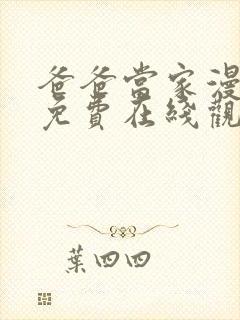 爸爸當家漫
免費在綫觀
葉四四